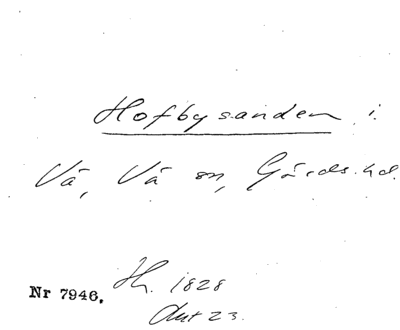 Hofbysanden i.
Vä, Vä sn, Gärds hd.
Nr 7946. Hr. 1828
Akt 23.